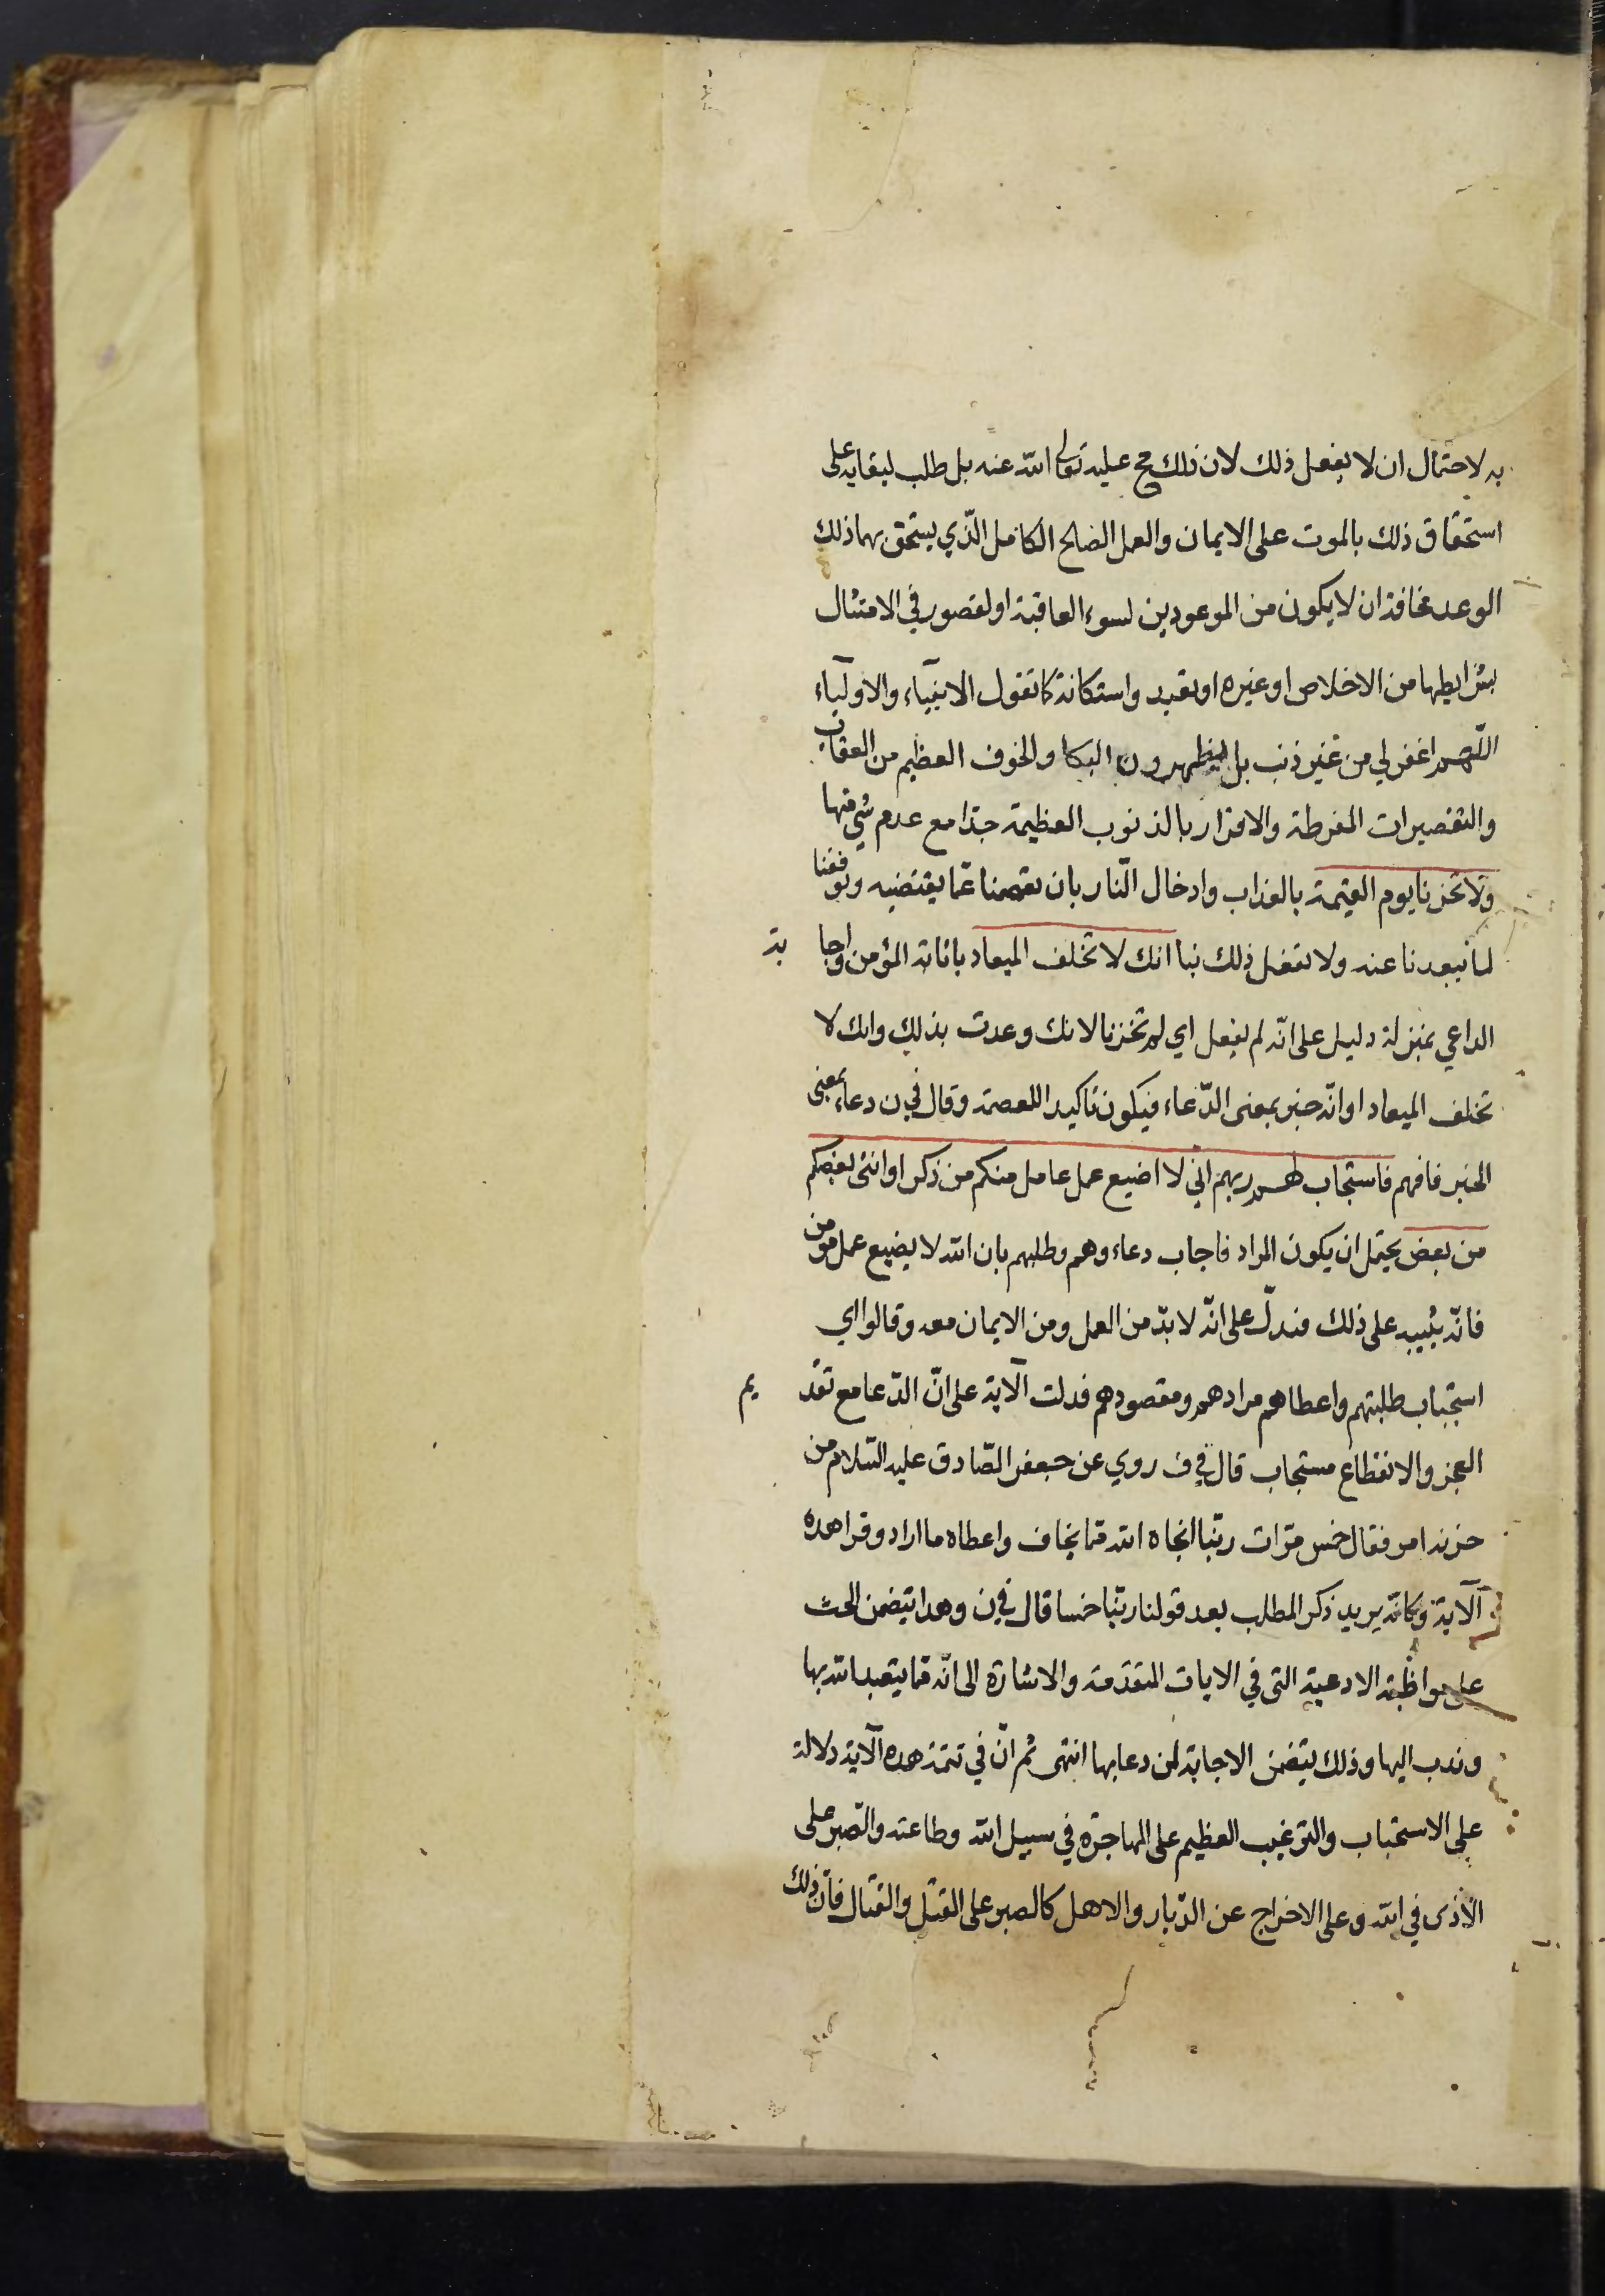 به لاحتمال ان لا يفعل ذلك لان ذلك مح عليه تعالى الله عنه بل طلب لبقايه على
استحقاق ذلك بالموت على الايمان والعمل الصالح الكامل الّذي يستحق بهما ذلك
الوعد مخافة ان لا يكون من الموعودين لسوء العاقبة او لقصور في الامتثال
بشرايطها من الاخلاص او غيره او تعبد واستكانة كما تقول الانبيآء والاوليآء
اللّهم اغفر لي من غير ذنب بل يظهرون البكا والخوف العظيم من العقاب
والتقصيرات المفرطة والاقرار بالذنوب العظيمة جدّا مع عدم شئ منها
ولا تخزنا يوم القيمة بالعذاب وادخال النّار بان تعصمنا عمّا يقتضيه وتوفقنا
لما يبعدنا عنه ولا تفعل ذلك بنا انك لا تخلف الميعاد باثابة المؤمن واجابة
الداعي بمنزلة دليل على انّه لم يفعل اي لم تخزنا لانك وعدت بذلك وانك لا
تخلف الميعاد او انّه خبر بمعنى الدّعاء فيكون تاكيد اللعصمة وقال في ن دعاء بمعنى
الخبر فافهم فاستجاب لهم ربهم انّي لا اضيع عمل عامل منكم من ذكر او انثى بعضكم
من بعض يحتمل ان يكون المراد فاجاب دعاءوهم وطلبهم بان الله لا يضيع عمل مؤمن
فانّه يثيبه على ذلك فتدلّ على انّه لا بدّ من العمل ومن الايمان معه وقالوا اي
استجاب طلبتهم واعطاهم مرادهم ومقصودهم فدلت الآية على انّ الدّعا مع تقديم
العجز والانقطاع مستجاب قال في ف روي عن جعفر الصّادق عليه السّلام من
حزنه امر فقال خمس مرّات ربّنا انجاه الله ممّا يخاف واعطاه ما اراد وقرا هذه
الآية وكانّه يريد ذكر المطلب بعد قولنا ربّنا خمسا قال في ن وهذا يتضمن الحثّ
على مواظبة الادعية التى في الايات المتقدّمة والاشارة الى انّه ممّا يتعبد الله بها
وندب اليها وذلك يتضمن الاجابة لمن دعا بها انتهى ثم انّ في تتمة هذه الآية دلالة
على الاستحباب والترغيب العظيم على المهاجرة في سبيل الله وطاعته والصّبر على
الاذى في الله وعلى الاخراج عن الدّيار والاهل كالصبر على القتل والقتال فانّ ذلك